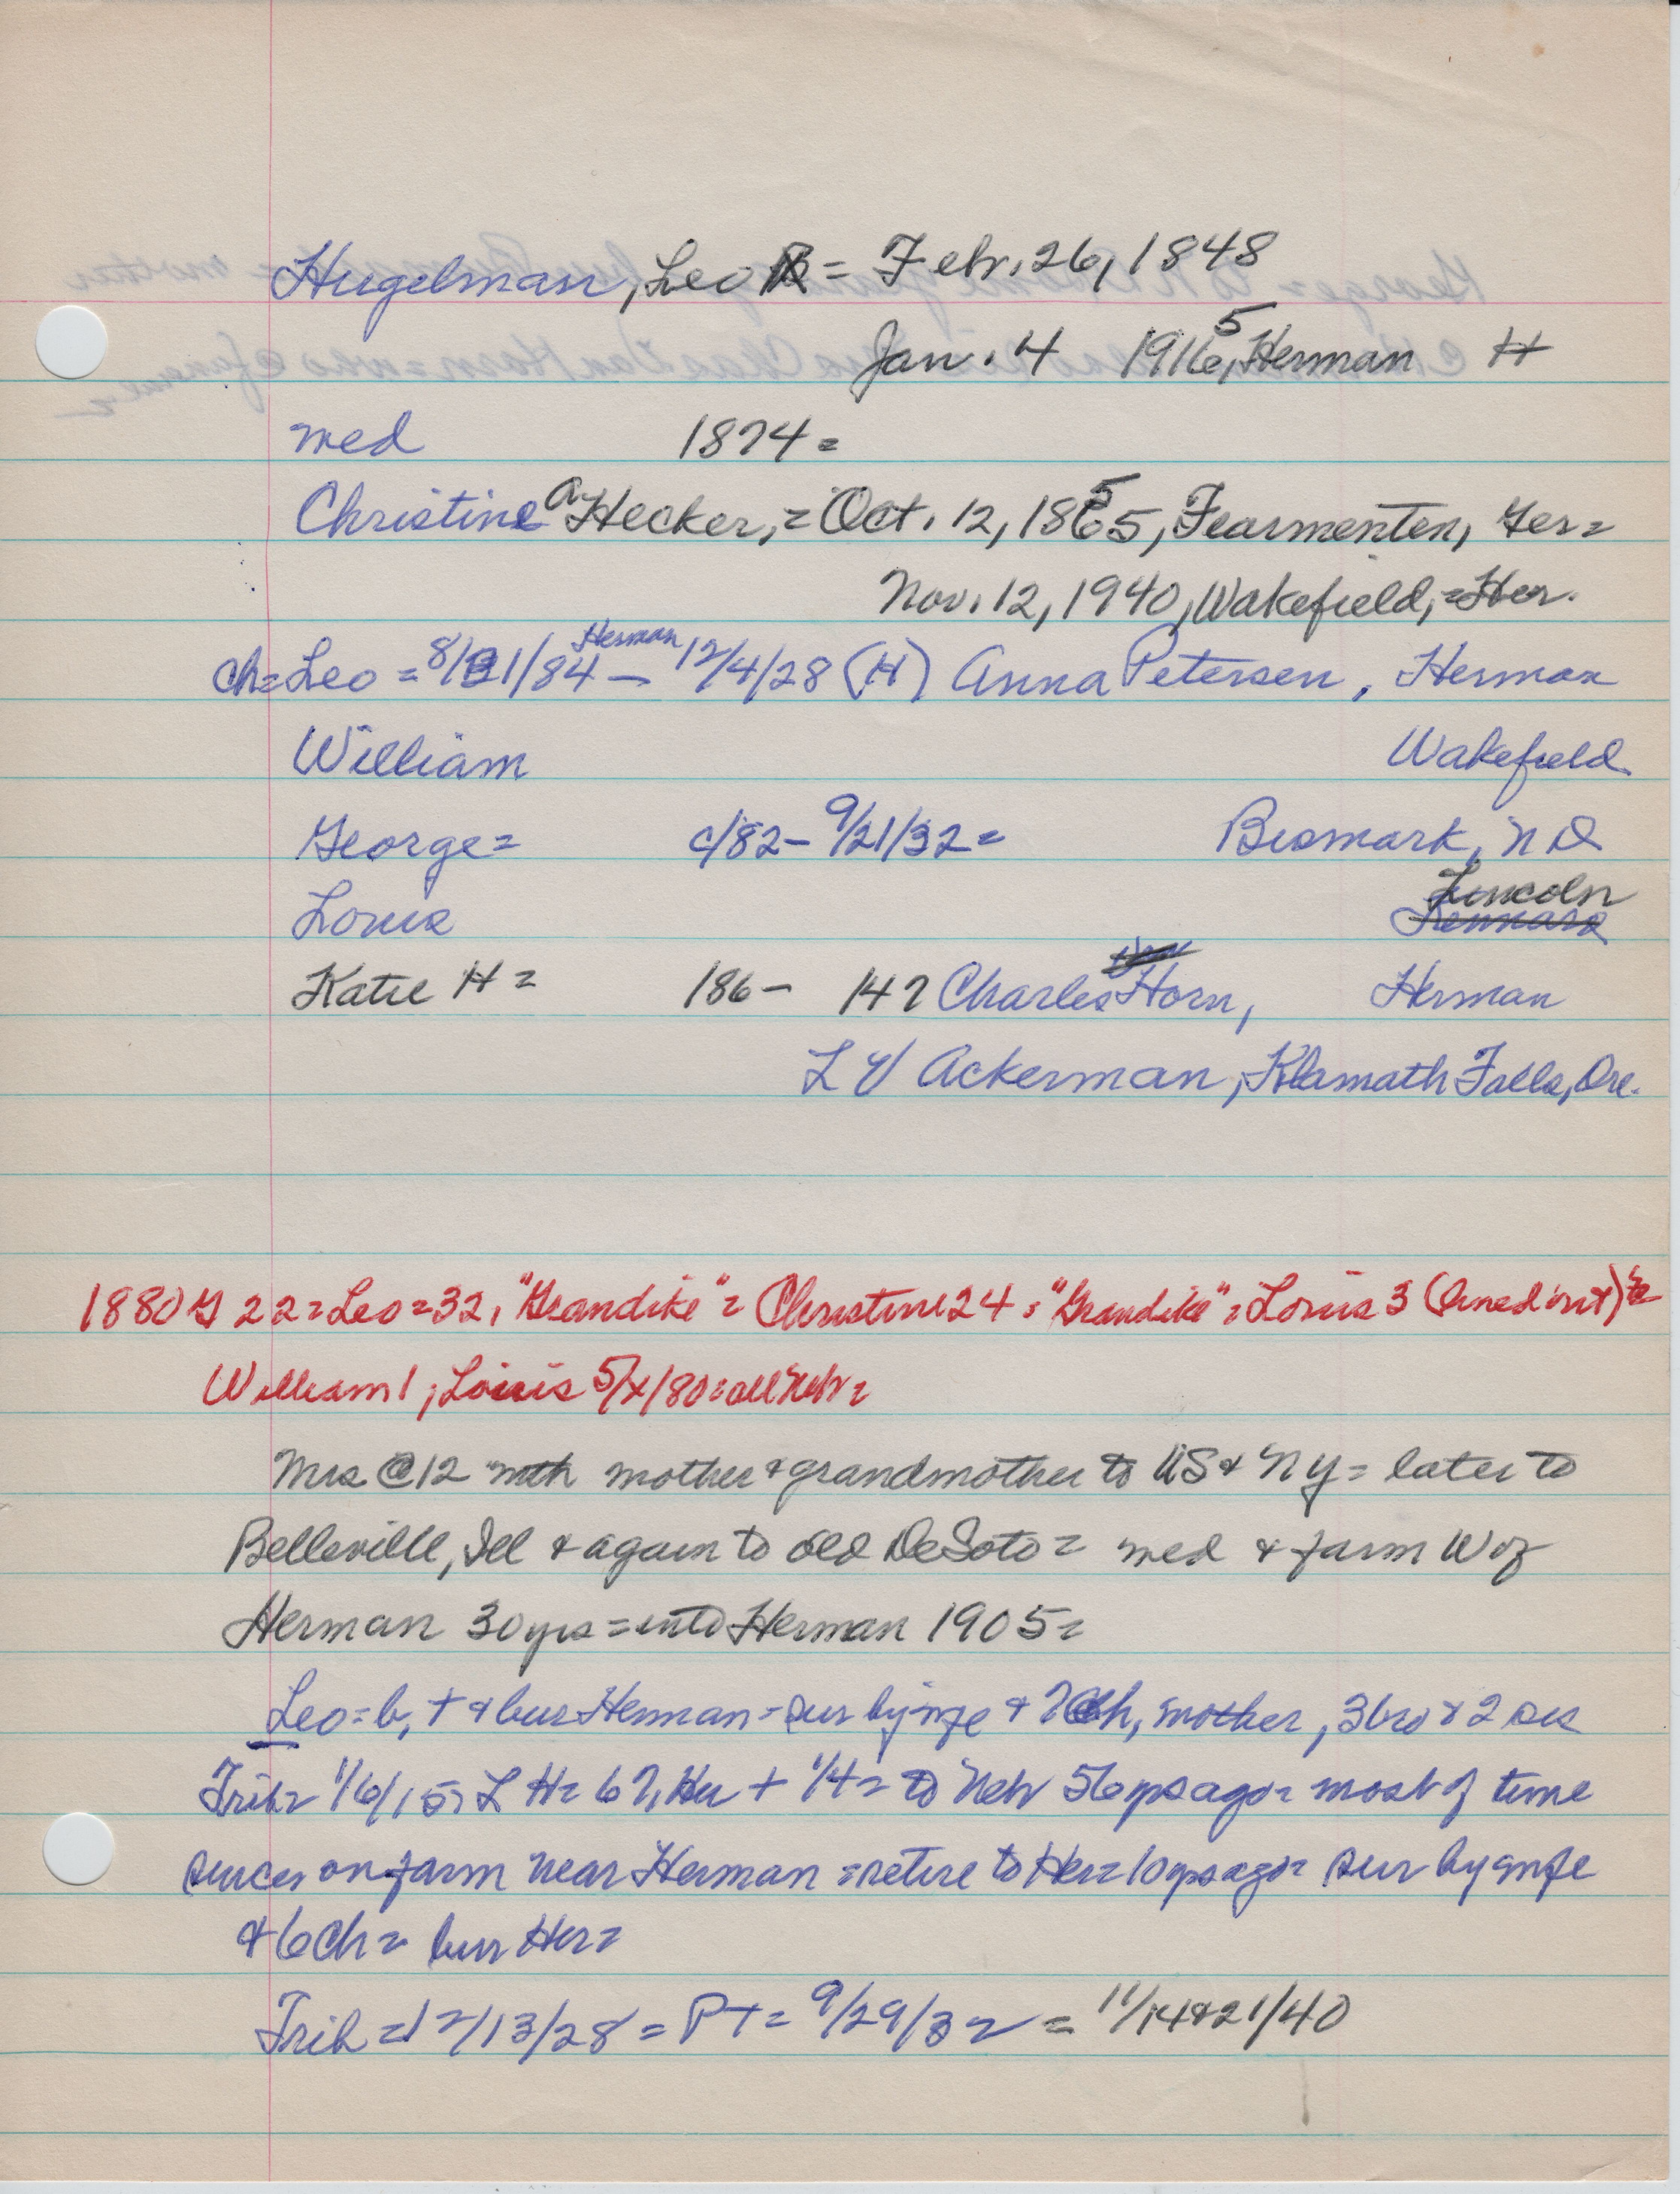 Hugelman, Leo = Febr. 26, 1848
Jan. 4 1916, 5 Herman H
med 1874 =
Christine a Hecker, = Oct. 12, 1865, 5 Fearmenten, Ger =
Nov. 12, 1940, Wakefield, = Her.
Ch = Leo = 8/21/84 Herman — 12/4/28 (H) Anna Petersen, Herman
William Wakefield
George = c/82 — 9/21/32 = Bismark, N D
Louis Lincoln Kennard
Katie H = 186 — 14? Charles Horn, Herman
L V Ackerman, Klamath Falls, Ore.
1880 G 22 = Leo = 32, "Grandike" = Christine 24 = "Grandike" = Louis 3 (lined out)
William 1, Louis 5/x/80 = all Nebr =
Mrs @ 12 with mother & grandmother to US & NY = later to
Belleville, Ill & again to old DeSoto = med & farm W of
Herman 30 yrs = into Herman 1905 =
Leo = b, + & bur Herman = sur by wife & ? ch, mother, 3 bro & 2 sis
Trib = 1/6/15 = L H = 67, Her + 1/4 = to Nebr 56 yrs ago = most of time
since on farm near Herman = retire to Her = 10 yrs ago = sur by wife
& 6 Ch = bur Her =
Trib = 12/13/28 = PT = 9/29/32 = 11/14&21/40